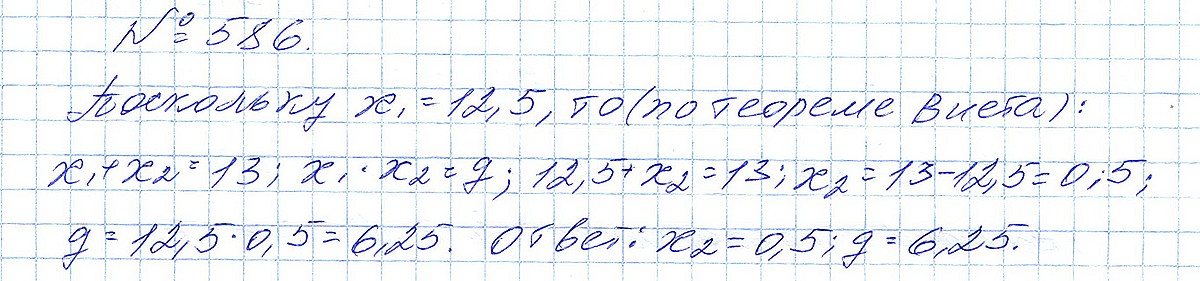 № 586.
Поскольку x₁ = 12,5, то (по теореме Виета):
x₁ + x₂ = 13; x₁ · x₂ = g; 12,5 + x₂ = 13; x₂ = 13 - 12,5 = 0,5;
g = 12,5 · 0,5 = 6,25. Ответ: x₂ = 0,5; g = 6,25.